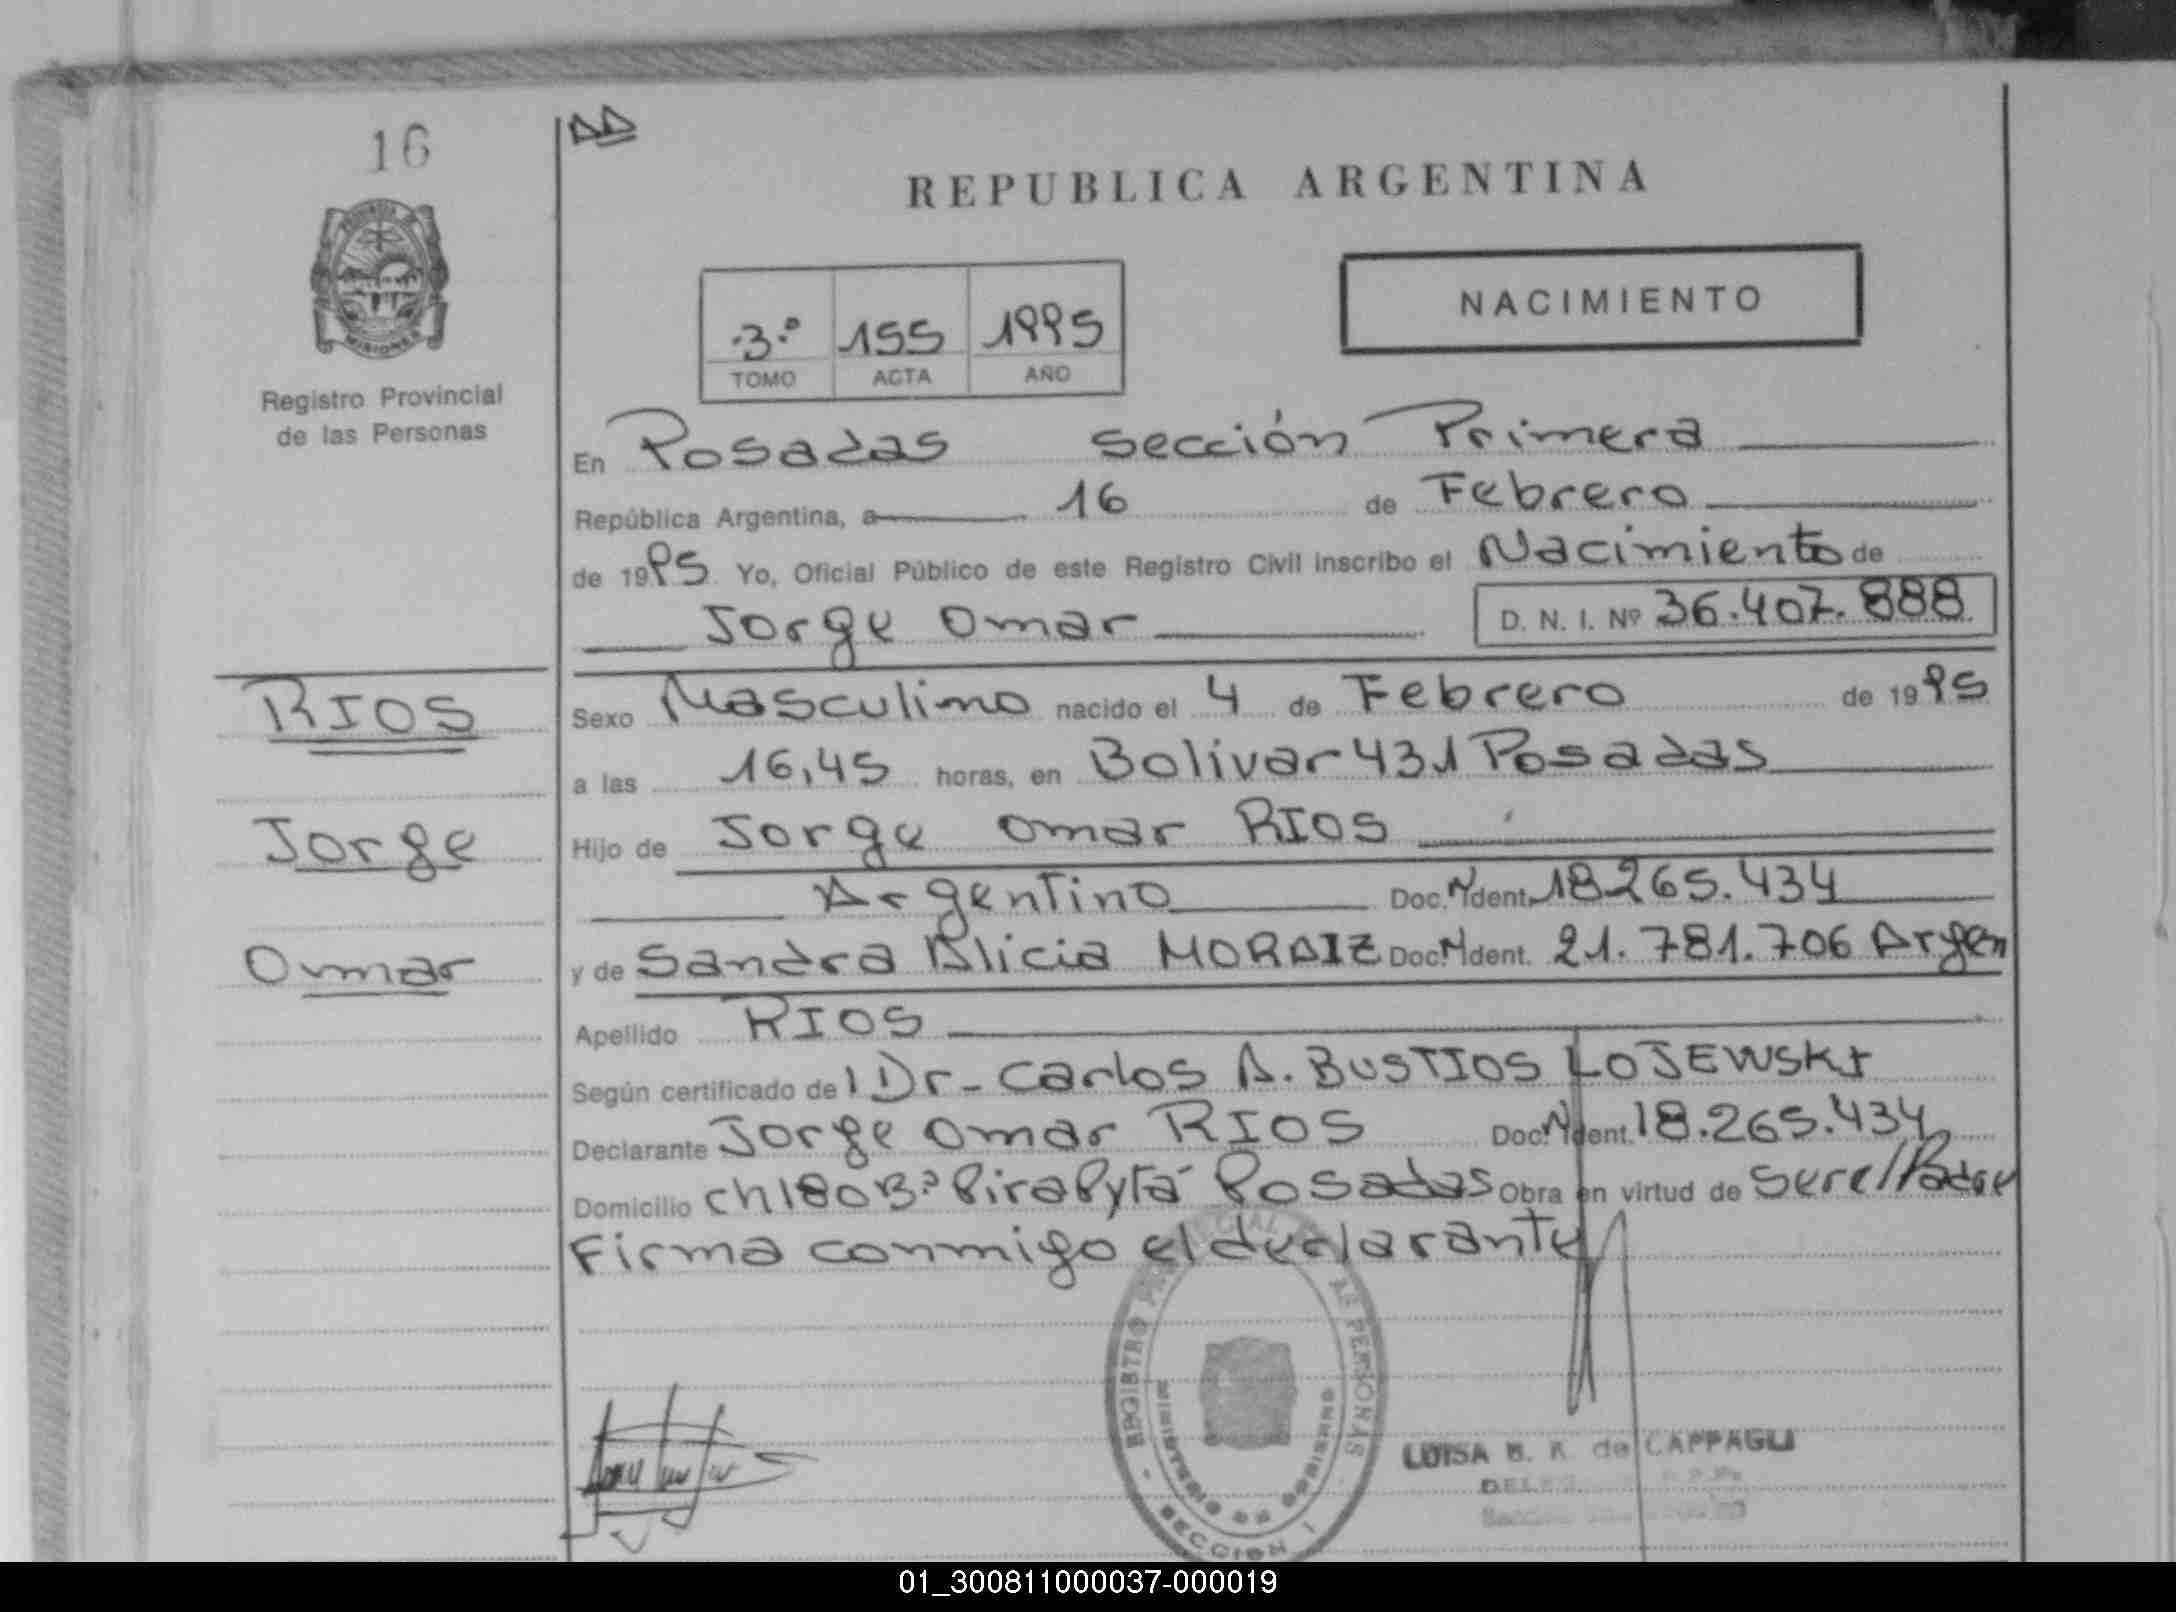 16
REPUBLICA ARGENTINA
MISIONES
Registro Provincial
de las Personas
3º 155 1995
TOMO ACTA AÑO
NACIMIENTO
En Posadas sección Primera
República Argentina, a 16 de Febrero
de 1995 Yo, Oficial Público de este Registro Civil inscribo el Nacimiento de
Jorge Omar D. N. I. Nº 36.407.888
RIOS
Jorge
Omar
Sexo Masculino nacido el 4 de Febrero de 1995
a las 16,45 horas, en Bolivar 431 Posadas
Hijo de Jorge Omar RIOS
Argentino Doc. N Ident. 18265.434
y de Sandra Alicia MORAIZ Doc. N Ident. 21.781.706 Argen
Apellido RIOS
Según certificado de l Dr- Carlos A. BUSTIOS LOJEWSKI
Declarante Jorge Omar RIOS Doc. N Ident. 18.265.434
Domicilio ch180 Bº PiraPytá Posadas Obra en virtud de ser el Padre
Firma conmigo el declarante
REGISTRO PROVINCIAL DE LAS PERSONAS
MINISTERIO DE GOBIERNO
SECCION I
LUISA B. K. de CAPPAGLI
01_300811000037-000019